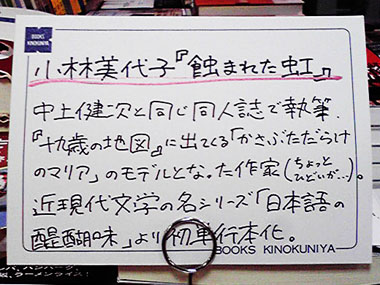 BOOKS
KINOKUNIYA
小林美代子『蝕まれた虹』
中上健次と同じ同人誌で執筆、
『十九歳の地図』に出てくる「かさぶただらけ
のマリア」のモデルとなった作家(ちょっと
ひどいが…)。
近現代文学の名シリーズ「日本語の
醍醐味」より初単行本化。
BOOKS KINOKUNIYA